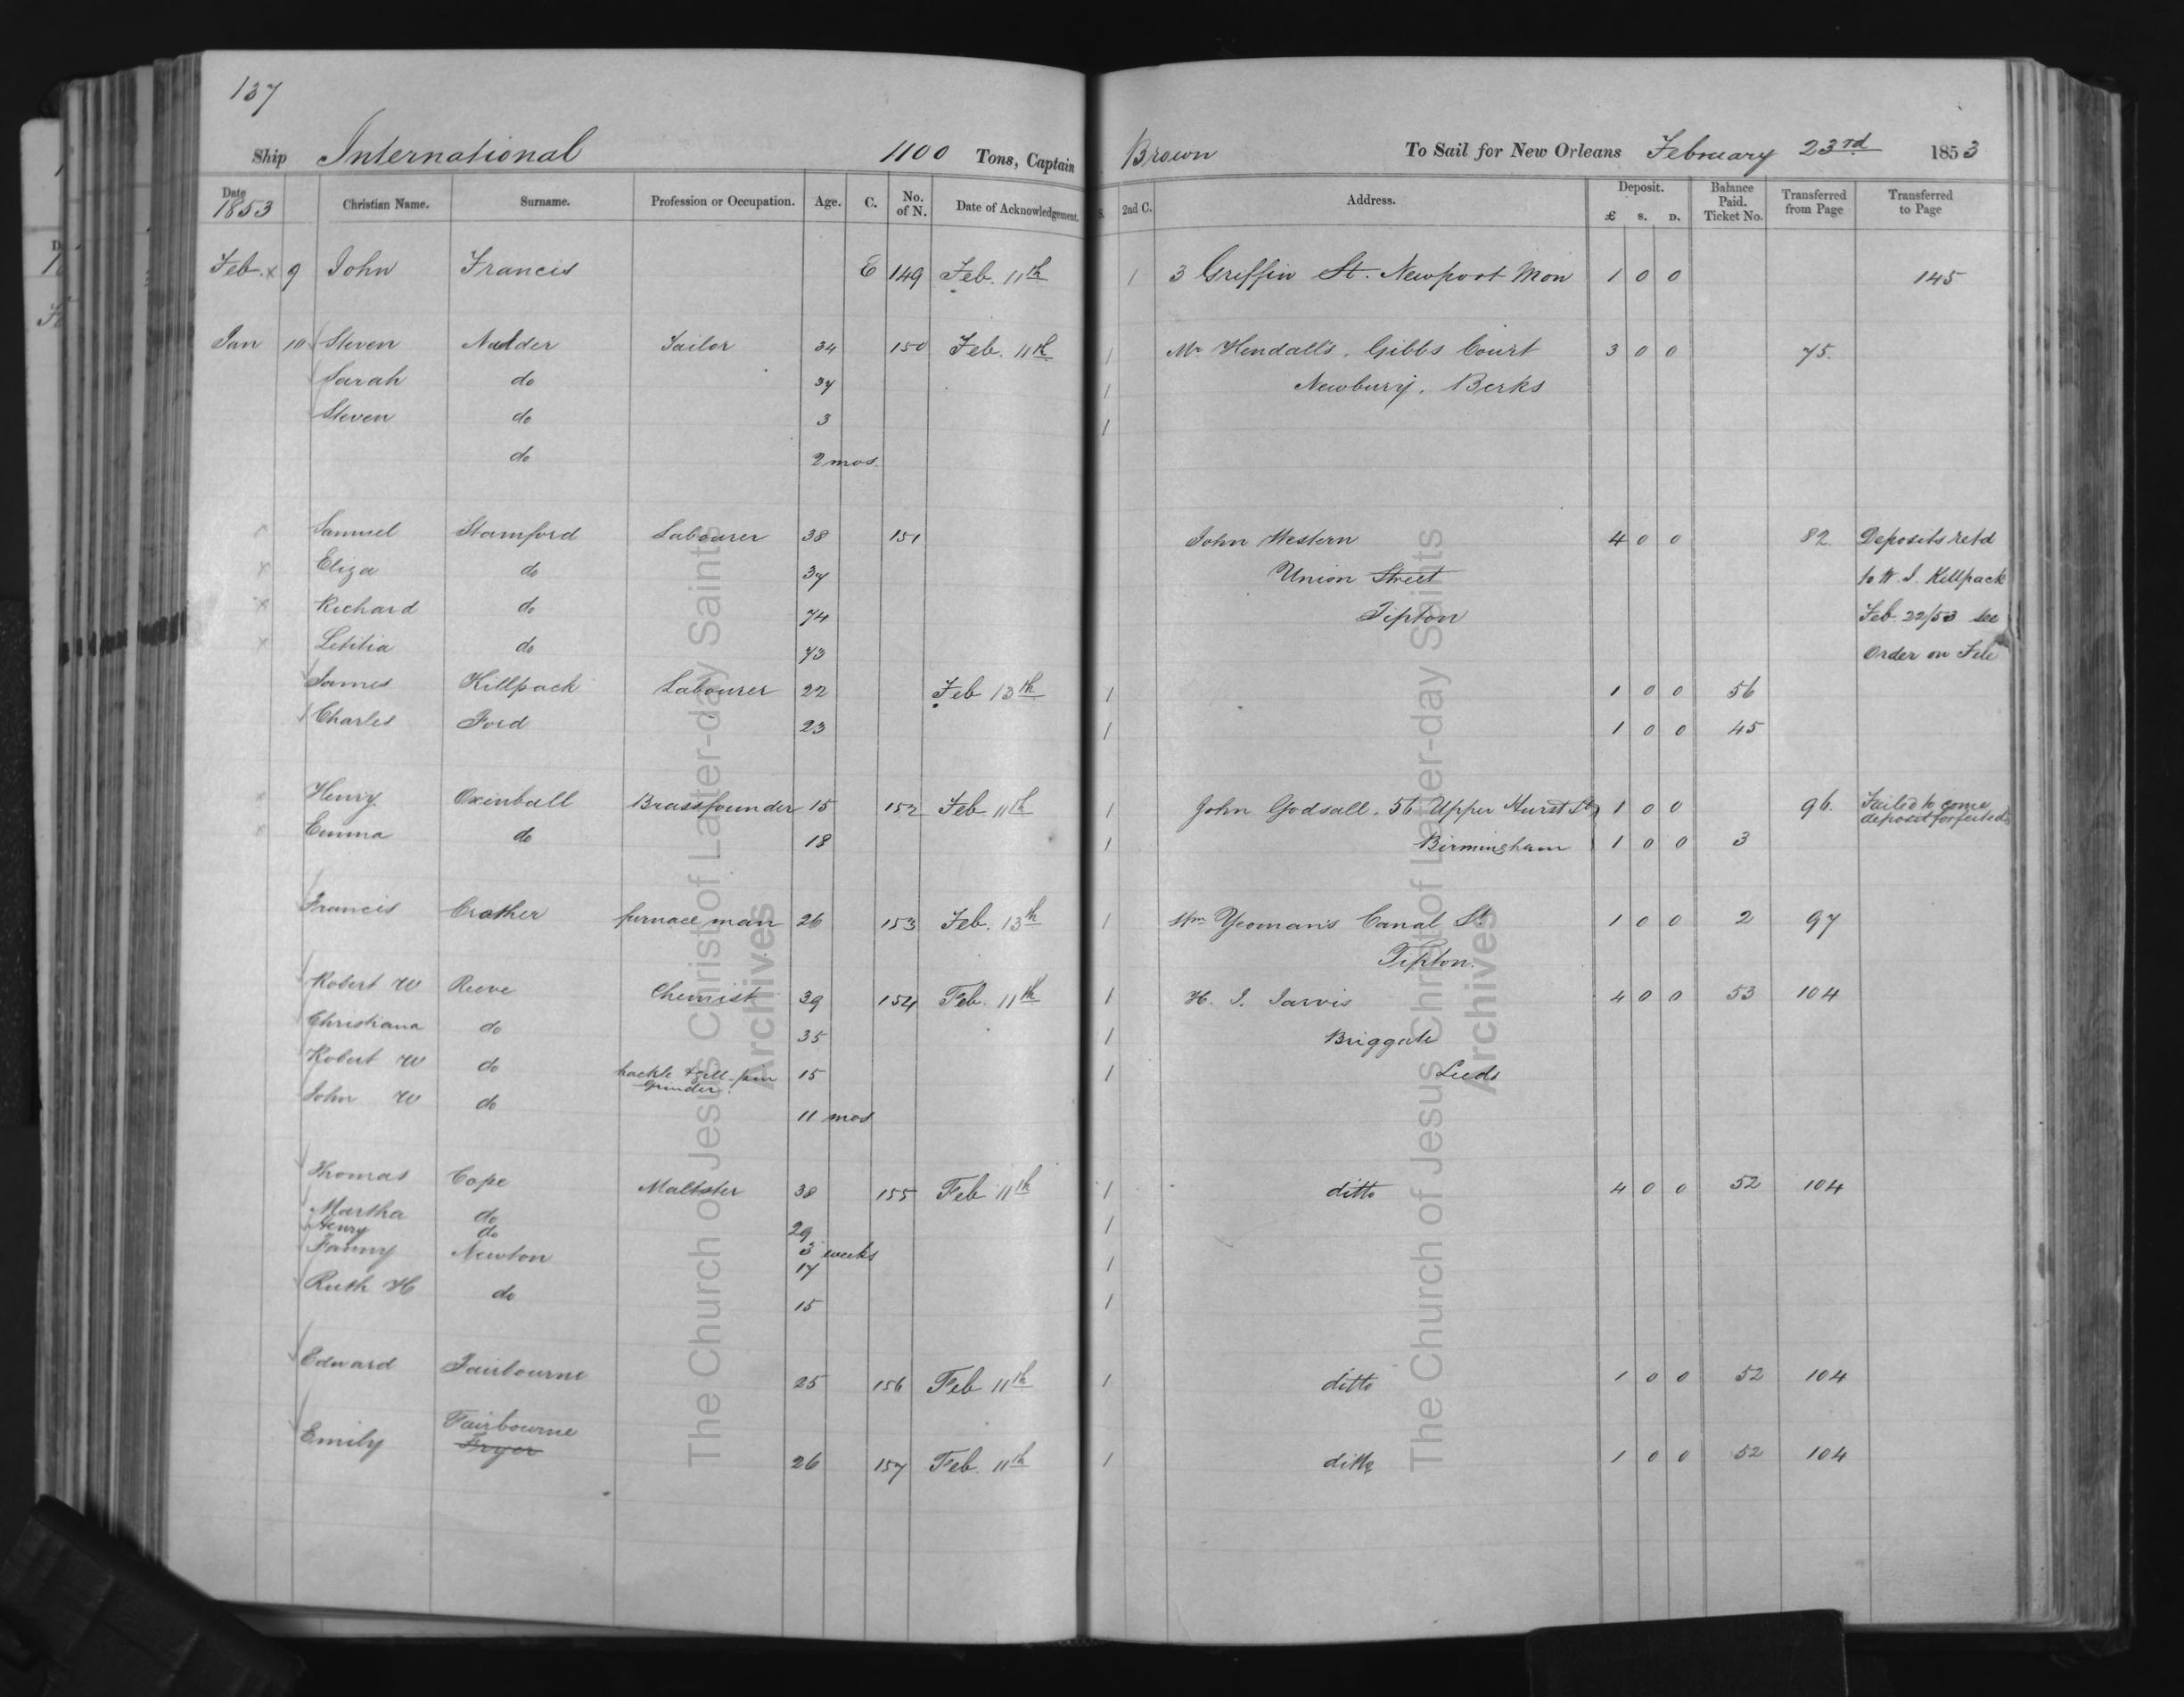 137
Ship International 1100 Tons, Captain Brown To Sail for New Orleans February 23rd 1853
Date 1853 Christian Name. Surname. Profession or Occupation. Age. C. No. of N. Date of Acknowledgement. S. 2nd C. Address. Deposit. £ S. D. Balance Paid. Ticket No. Transferred from Page Transferred to Page
Feb. x 9 John Francis E 149 Feb. 11th 1 3 Griffin St. Newport Mon 1 0 0 145
Jan 10 Steven Nadder Tailor 34 150 Feb. 11th 1 Mr Kendall's, Gibbs Court 3 0 0 75.
Sarah do 37 1 Newbury, Berks
Steven do 3 1
do 2 mos.
x Samuel Stamford Labourer 38 151 John Western 4 0 0 82 Deposits retd
x Eliza do 37 Union Street to W. J. Killpack
x Richard do 74 Tipton Feb. 22/53 see
x Letitia do 73 Order on File
James Killpack Labourer 22 Feb 13th 1 1 0 0 56
Charles Ford 23 1 1 0 0 45
x Henry Oxenball Brassfounder 15 152 Feb 11th 1 John Godsall, 56 Upper Hurst St 1 0 0 96. Failed to come deposit forfeited
x Emma do 18 1 Birmingham 1 0 0 3
Francis Crather furnace man 26 153 Feb. 13th 1 Wm Yeoman's Canal St 1 0 0 2 97
Tipton.
Robert W Reeve Chemist 39 154 Feb. 11th 1 H. J. Jarvis 4 0 0 53 104
Christiana do 35 1 Briggate
Robert W do hackle & gill-pin Grinder. 15 1 Leeds
John W do 11 mos
Thomas Cope Maltster 38 155 Feb 11th 1 ditto 4 0 0 52 104
Martha do 29 1
Henry do 3 weeks
Fanny Newton 17 1
Ruth H do 15 1
Edward Fairbourne 25 156 Feb 11th 1 ditto 1 0 0 52 104
Fairbourne
Emily Fryer 26 157 Feb. 11th 1 ditto 1 0 0 52 104
The Church of Jesus Christ of Latter-day Saints
Archives
The Church of Jesus Christ of Latter-day Saints
Archives